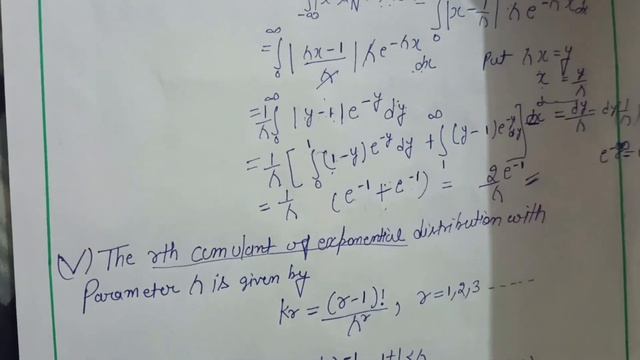 = ∫₀^∞ |x - 1/λ| λ e^{-λx} dx
= ∫₀^∞ |(λx-1)/λ| λ e^{-λx} dx Put λx = y
x = y/λ
= 1/λ ∫₀^∞ |y-1| e^{-y} dy dx = dy/λ = dy 1/λ
= 1/λ [ ∫₀^1 (1-y) e^{-y} dy + ∫₁^∞ (y-1) e^{-y} dy ]
= 1/λ (e^{-1} + e^{-1}) = 2e^{-1}/λ =
V) The rth cumulant of exponential distribution with
Parameter λ is given by
Kr = (r-1)!/λ^r, r = 1, 2, 3 -----